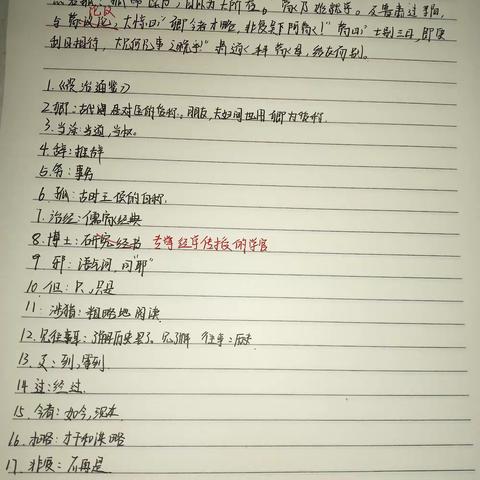 论议
与蒙论议，大惊曰："卿今者才略，非复吴下阿蒙！"蒙曰："士别三日，即更
刮目相待，大兄何见事之晚乎！"肃遂拜蒙母，结友而别。
1.《资治通鉴》
2.卿：古代君对臣的爱称。朋友，夫妇间也用卿为爱称
3.当涂：当道，当权。
4.辞：推辞
5.务：事务
6.孤：古时王侯的自称.
7.治经：儒家经典
8.博士：研究经书 专掌经学传授的学官
9.邪：语气词，同"耶"
10.但：只，只是
11.涉猎：粗略地阅读
12.见往事耳：了解历史罢了。见了解 往事：历史
13.及：到，等到
14.过：经过.
15.今者：如今，现在
16.才略：才干和谋略
17.非复：不再是